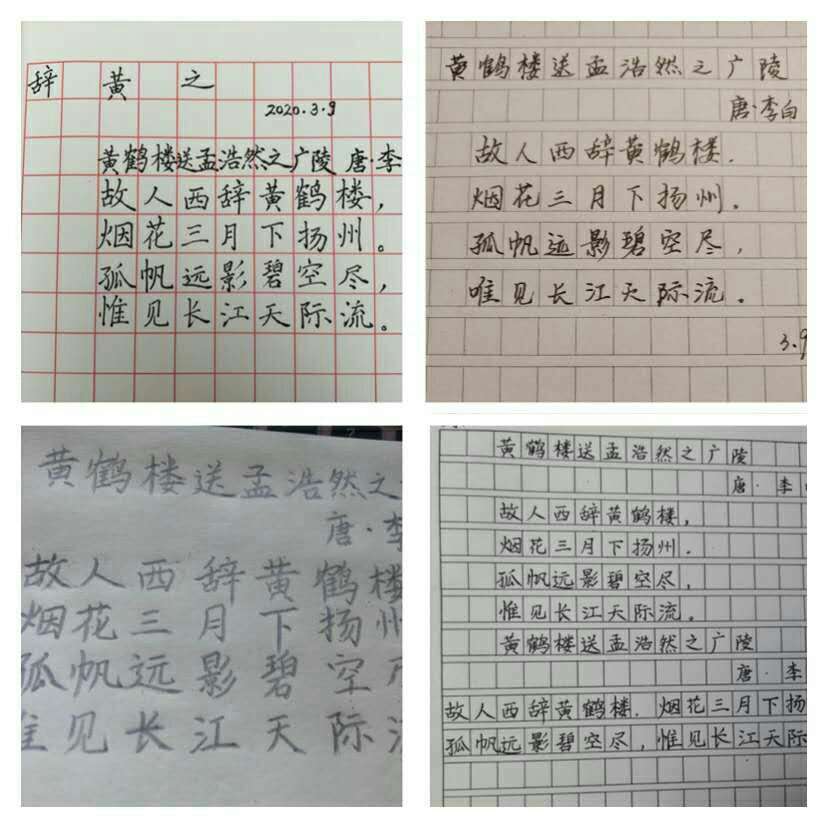 辞 黄 之
2020.3.9
黄鹤楼送孟浩然之广陵 唐·李
故人西辞黄鹤楼，
烟花三月下扬州。
孤帆远影碧空尽，
惟见长江天际流。
黄鹤楼送孟浩然之广陵
唐·李白
故人西辞黄鹤楼.
烟花三月下扬州。
孤帆远影碧空尽，
唯见长江天际流。
3.9
黄鹤楼送孟浩然之
唐·李
故人西辞黄鹤楼
烟花三月下扬州
孤帆远影碧空
惟见长江天际
黄鹤楼送孟浩然之广陵
唐·李
故人西辞黄鹤楼，
烟花三月下扬州.
孤帆远影碧空尽，
惟见长江天际流。
黄鹤楼送孟浩然之广陵
唐·李
故人西辞黄鹤楼.烟花三月下扬
孤帆远影碧空尽，惟见长江天际